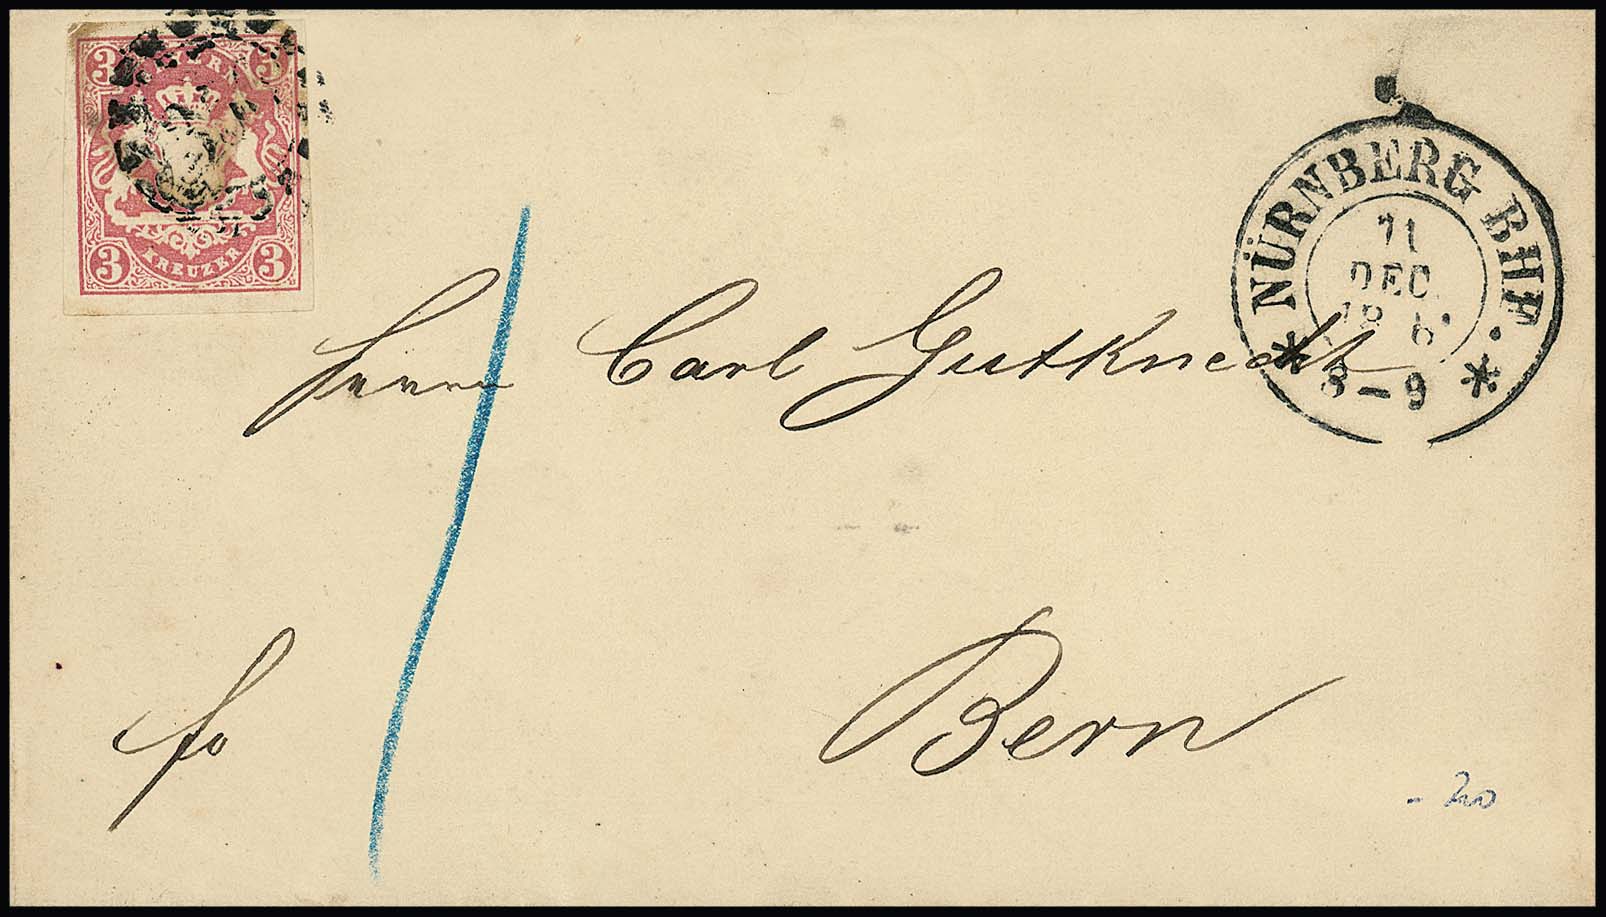 3 3
3 KREUZER 3
NÜRNBERG BHF.
11
DEC.
8-9
Herrn Carl Gutknecht
fo Bern